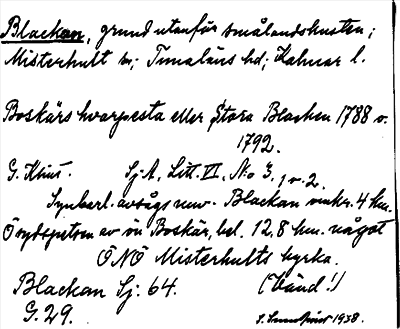 Blackan, grund utanför smålandskusten;
Misterhult sn; Tunaläns hd; Kalmar l.
Boskärs hvarpesta eller Stora Blacken 1788 o.
1792.
G. Klint. Sj. A. Litt. VI, No 3, 1 o. 2.
Synberl. avsågs nuv. Blackan omkr. 4 km.
Ö sydspetsen av ön Boskär, bel. 12,8 km. något
ÖNÖ Misterhults kyrka.
Blackan Sj. 64. (Vänd!)
G. 29. 1938.